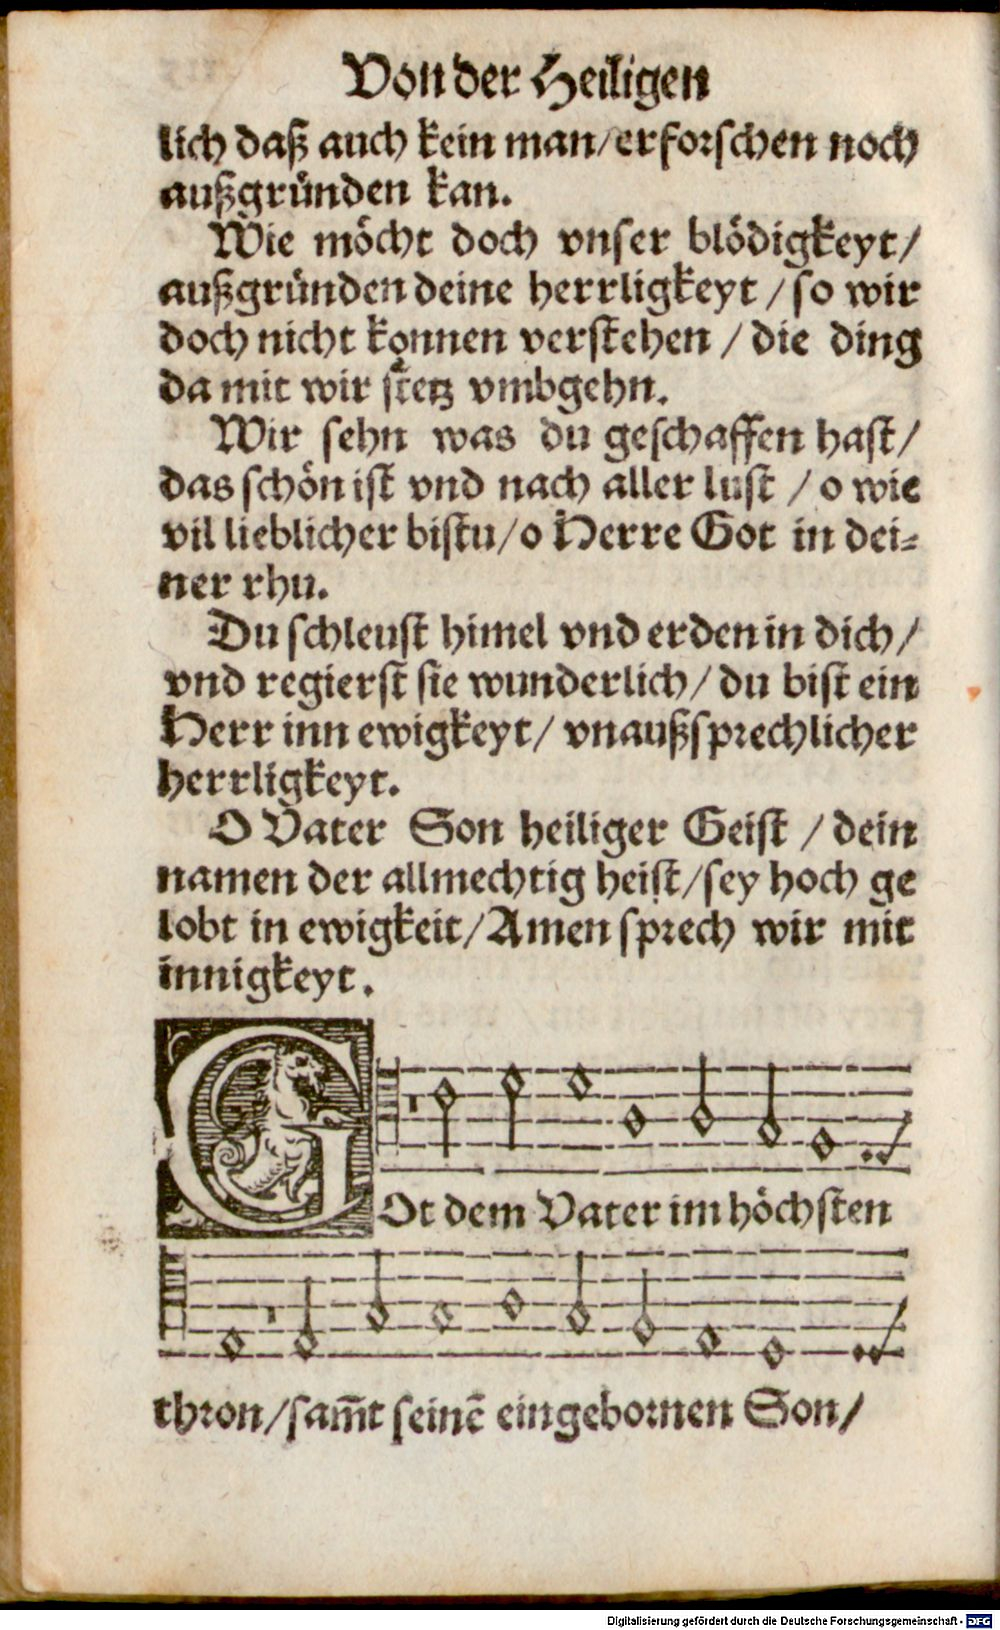 Von der Heiligen
lich daß auch kein man/erforschen noch
außgründen kan.
Wie möcht doch vnser blödigkeyt/
außgründen deine herrligkeyt/so wir
doch nicht konnen verstehen/die ding
da mit wir stetz vmbgehn.
Wir sehn was du geschaffen hast/
das schön ist vnd nach aller lust/o wie
vil lieblicher bistu/o Herre Got in dei⸗
ner rhu.
Du schleust himel vnd erden in dich/
vnd regierst sie wunderlich/du bist ein
Herr inn ewigkeyt/vnaußsprechlicher
herrligkeyt.
O Vater Son heiliger Geist/dein
namen der allmechtig heist/sey hoch ge
lobt in ewigkeit/Amen sprech wir mit
innigkeyt.
GOt dem Vater im höchsten
thron/sam̄t seinē eingebornen Son/
Digitalisierung gefördert durch die Deutsche Forschungsgemeinschaft - DFG